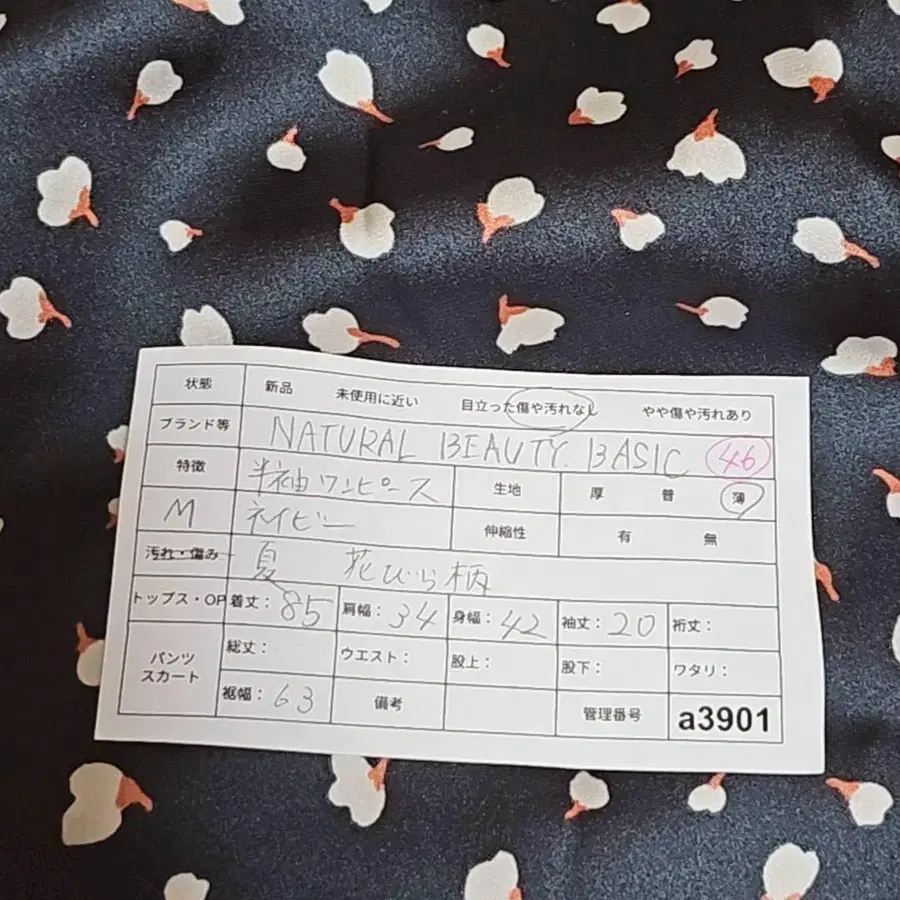 状態 新品 未使用に近い 目立った傷や汚れなし やや傷や汚れあり
ブランド等 NATURAL BEAUTY. BASIC 46
特徴 半袖ワンピース 生地 厚 普 薄
M ネイビー 伸縮性 有 無
汚れ・傷み 夏 花びら柄
トップス・OP 着丈: 85 肩幅: 34 身幅: 42 袖丈: 20 裄丈:
パンツ スカート 総丈: ウエスト: 股上: 股下: ワタリ:
裾幅: 63 備考 管理番号 a3901